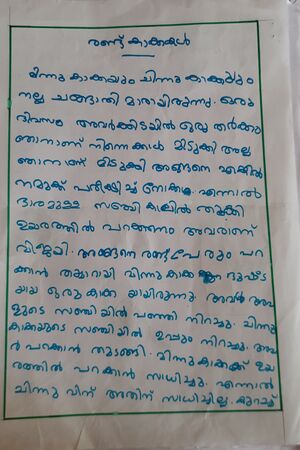 രണ്ട് കാക്കകൾ
മിന്നു കാക്കയും ചിന്നു കാക്കയും
നല്ല ചങ്ങാതി മാരായിരുന്നു. ഒരു
ദിവസം അവർക്കിടയിൽ ഒരു തർക്കം
ഞാനാണ് നിന്നെക്കാൾ മിടുക്കി അല്ല
ഞാനാണ് മിടുക്കി അങ്ങനെ എങ്കിൽ
നമുക്ക് പരീക്ഷിച്ച് നോക്കാം. എന്നാൽ
ഭാരമുള്ള സഞ്ചി കാലിൽ തൂക്കി
ഉയരത്തിൽ പറക്കണം അവരാണ്
വിജയി. അങ്ങനെ രണ്ട് പേരും പറ
ക്കാൻ തയ്യാറായി മിന്നു കാക്ക ദുഷ്ട
യായ ഒരു കാക്ക യായിരുന്നു. അവൾ അവ
ളുടെ സഞ്ചിയിൽ പഞ്ഞി നിറച്ചു. ചിന്നു
കാക്കയുടെ സഞ്ചിയിൽ ഉപ്പും നിറച്ചു. അവ
ർ പറക്കാൻ തുടങ്ങി. മിന്നു കാക്കക്ക് ഉയ
രത്തിൽ പറകാൻ സാധിച്ചു. എന്നാൽ
ചിന്നു വിന് അതിന് സാധിച്ചില്ല. കുറച്ച്